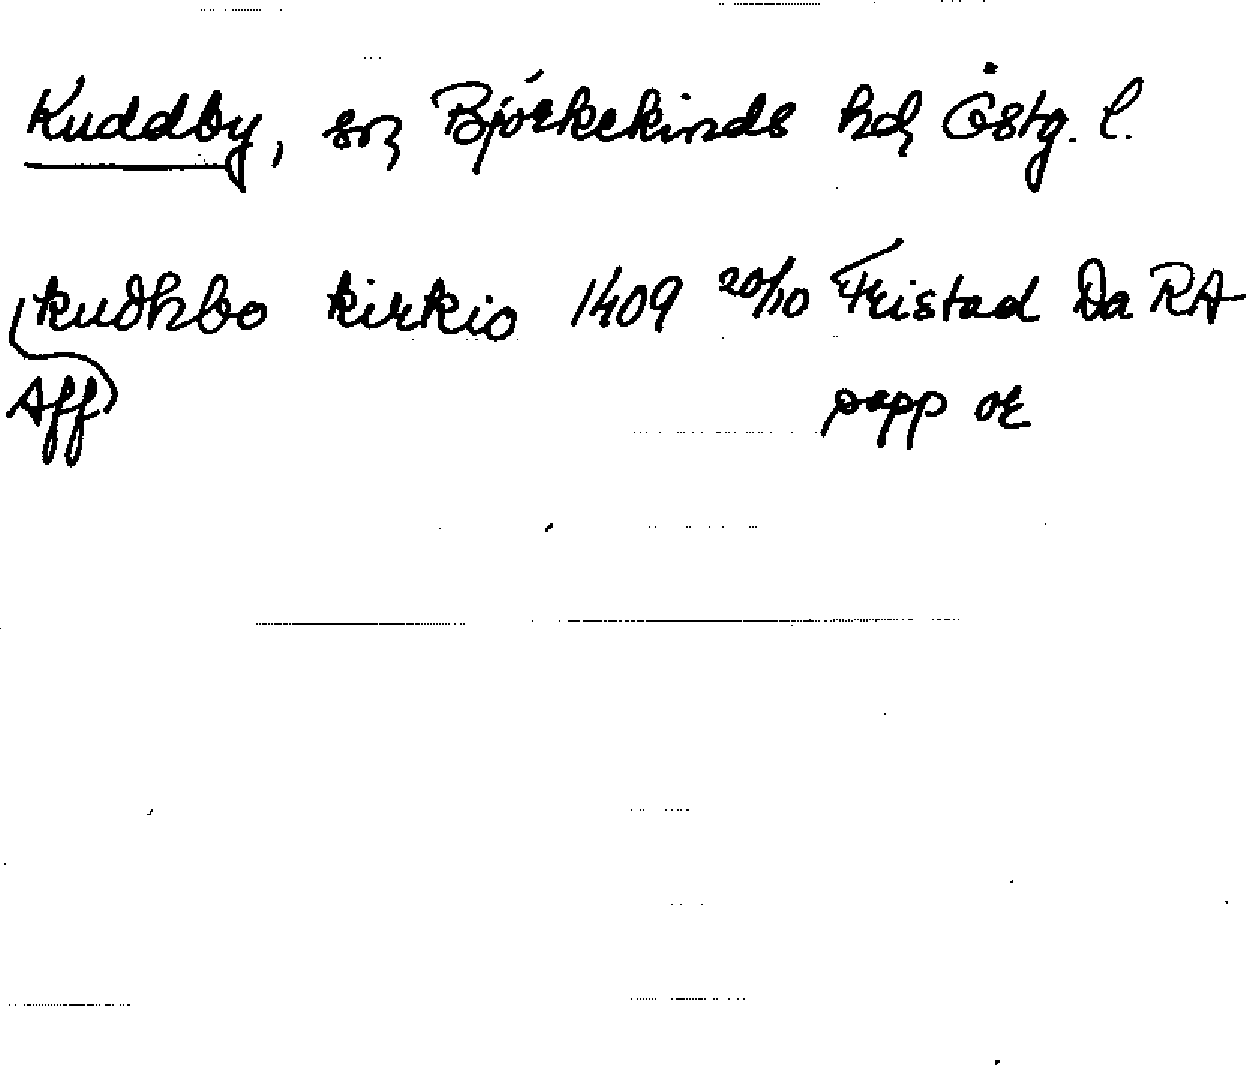 Kuddby, sn, Björkekinds hd, Östg. l.
kudhbo kirkio 1409 20/10 Fristad Da RA
Aff papp or